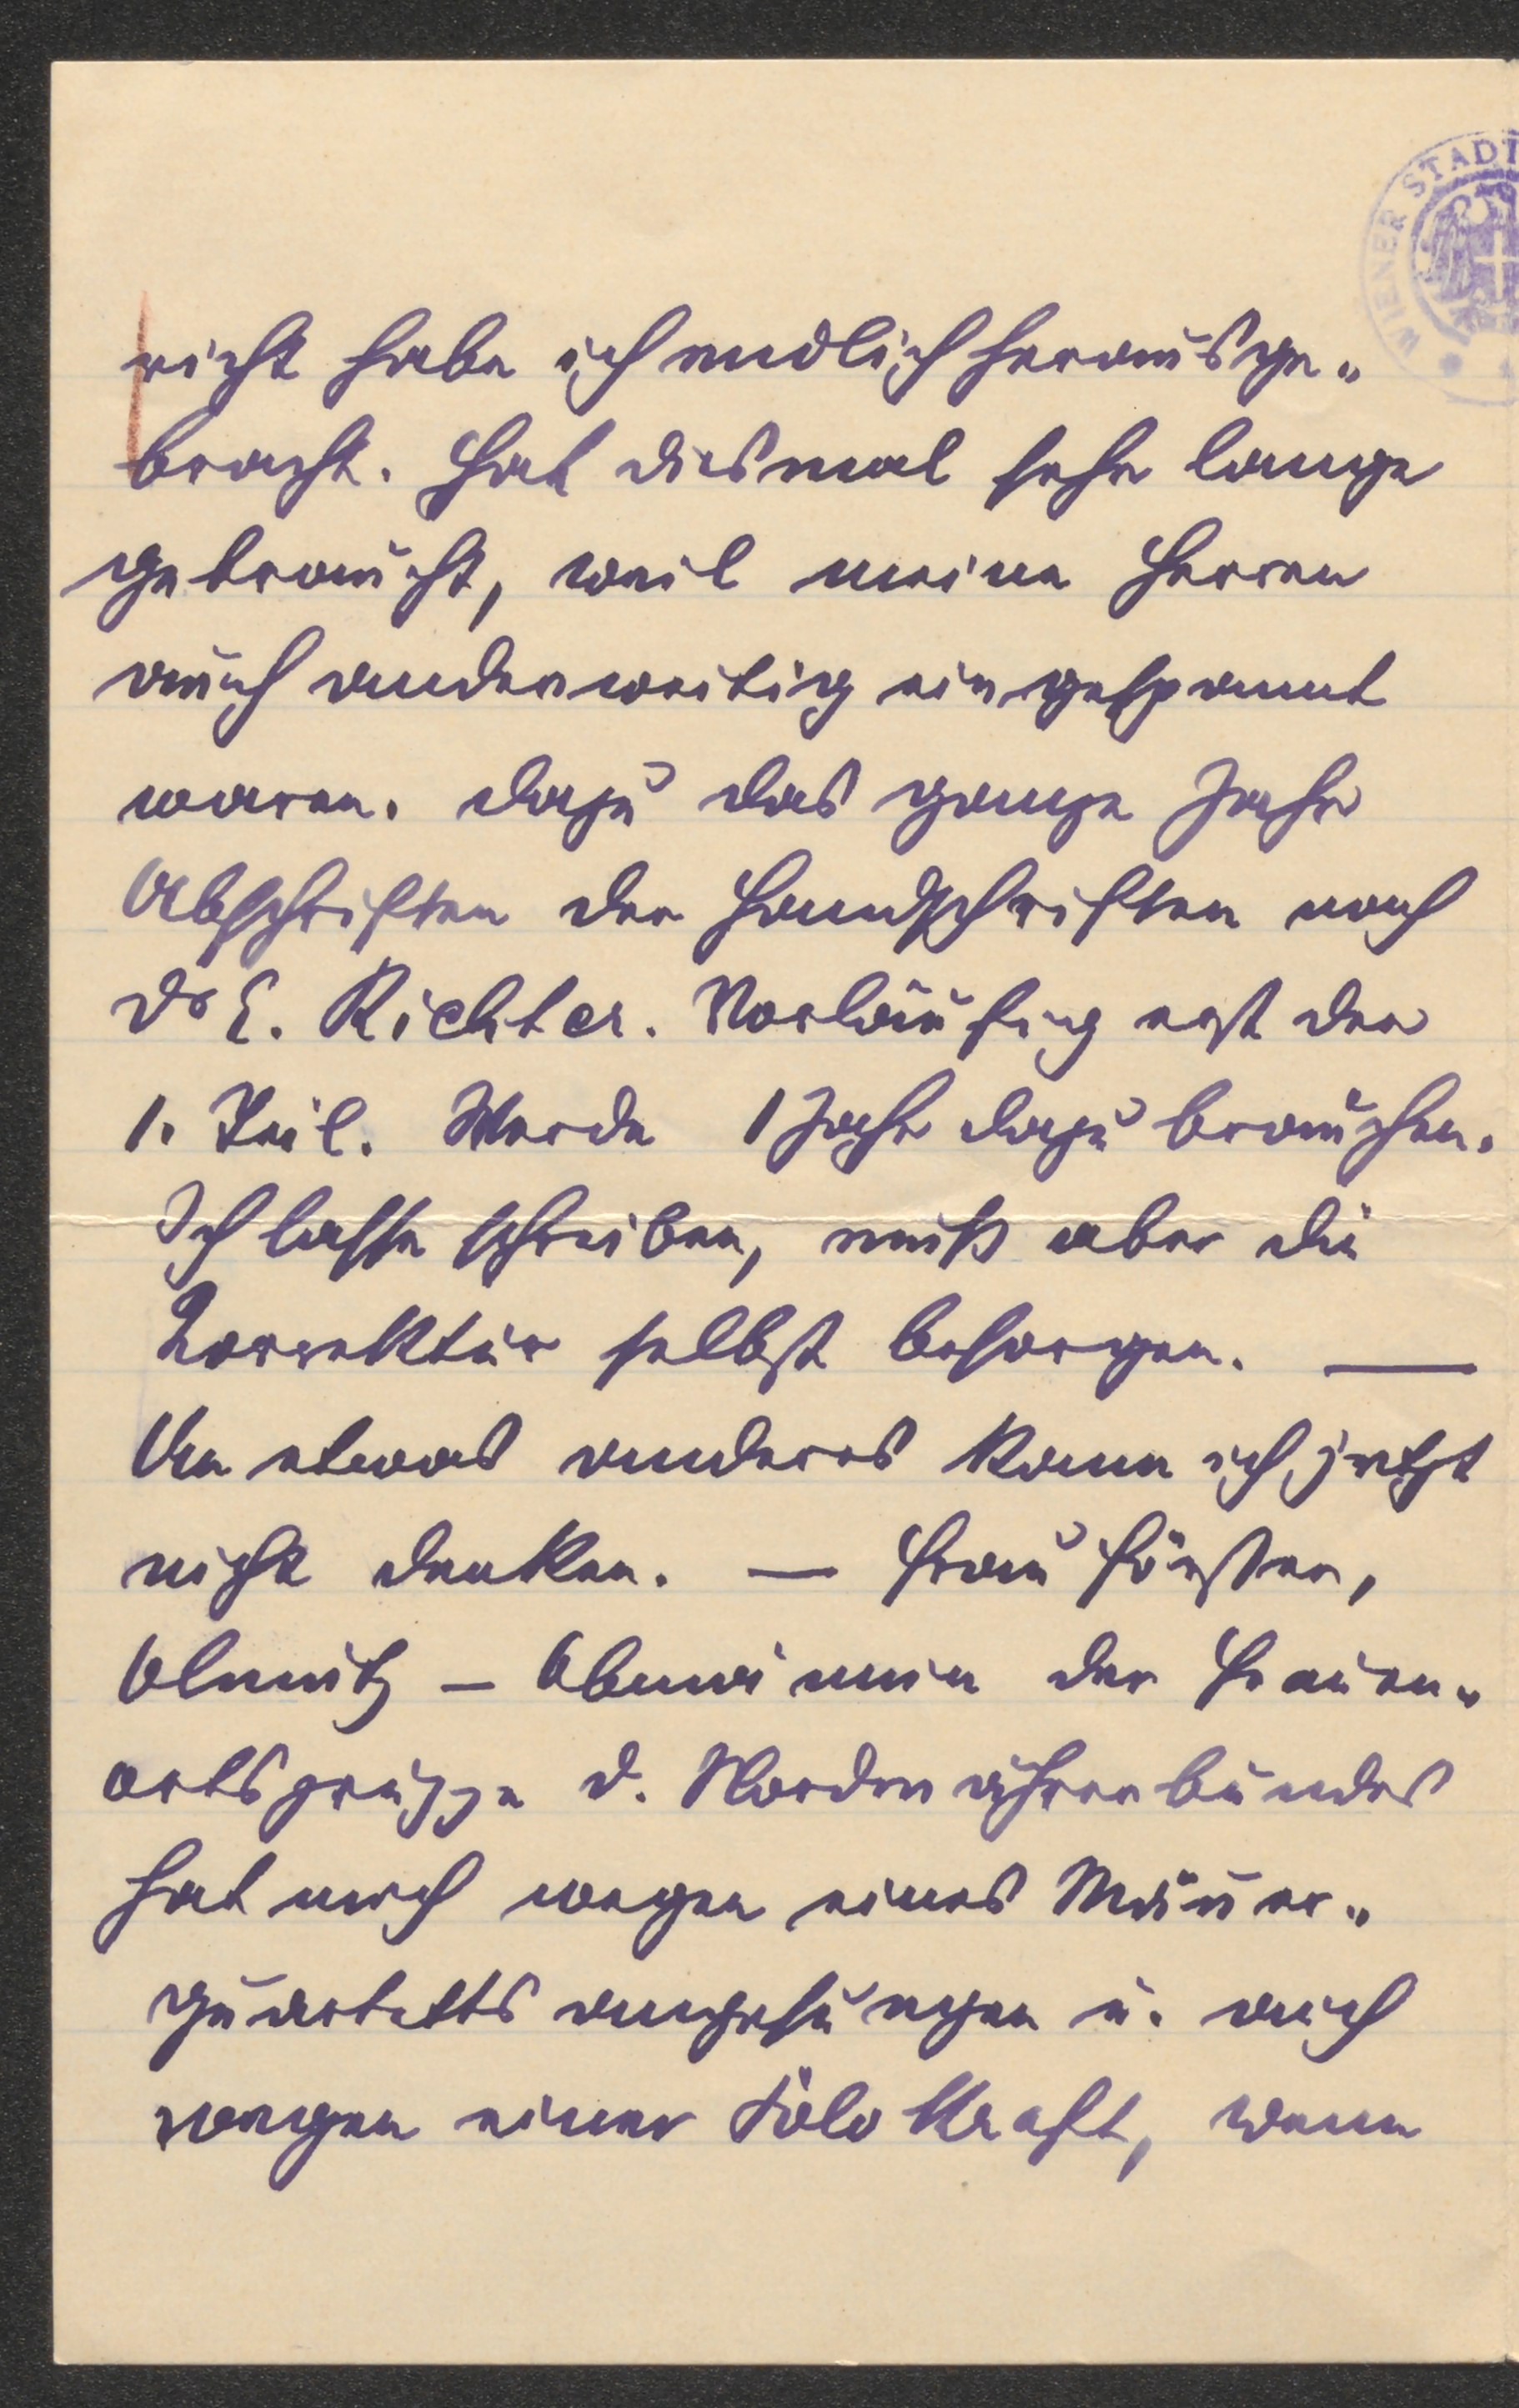 WIENER STADT
richt habe ich endlich herausge„
bracht. Hat diesmal sehr lange
gebraucht, weil meine Herren
auch anderweitig eingespannt
waren. Dazu das ganze Jahr
Abschriften der Handschriften nach
Dr E. Richter. Vorläufig erst der
1. Teil. Werde 1 Jahr dazu brauchen.
Ich lasse schreiben, muß aber die
Korrektur selbst besorgen. —
An etwas anderes kann ich jetzt
nicht denken. — Frau Förster,
Olmütz – Obmännin der Frauen„
ortsgruppe d. Nordmährerbundes
hat mich wegen eines Männer„
quartetts angesungen u. auch
wegen einer Solo Kraft, wenn